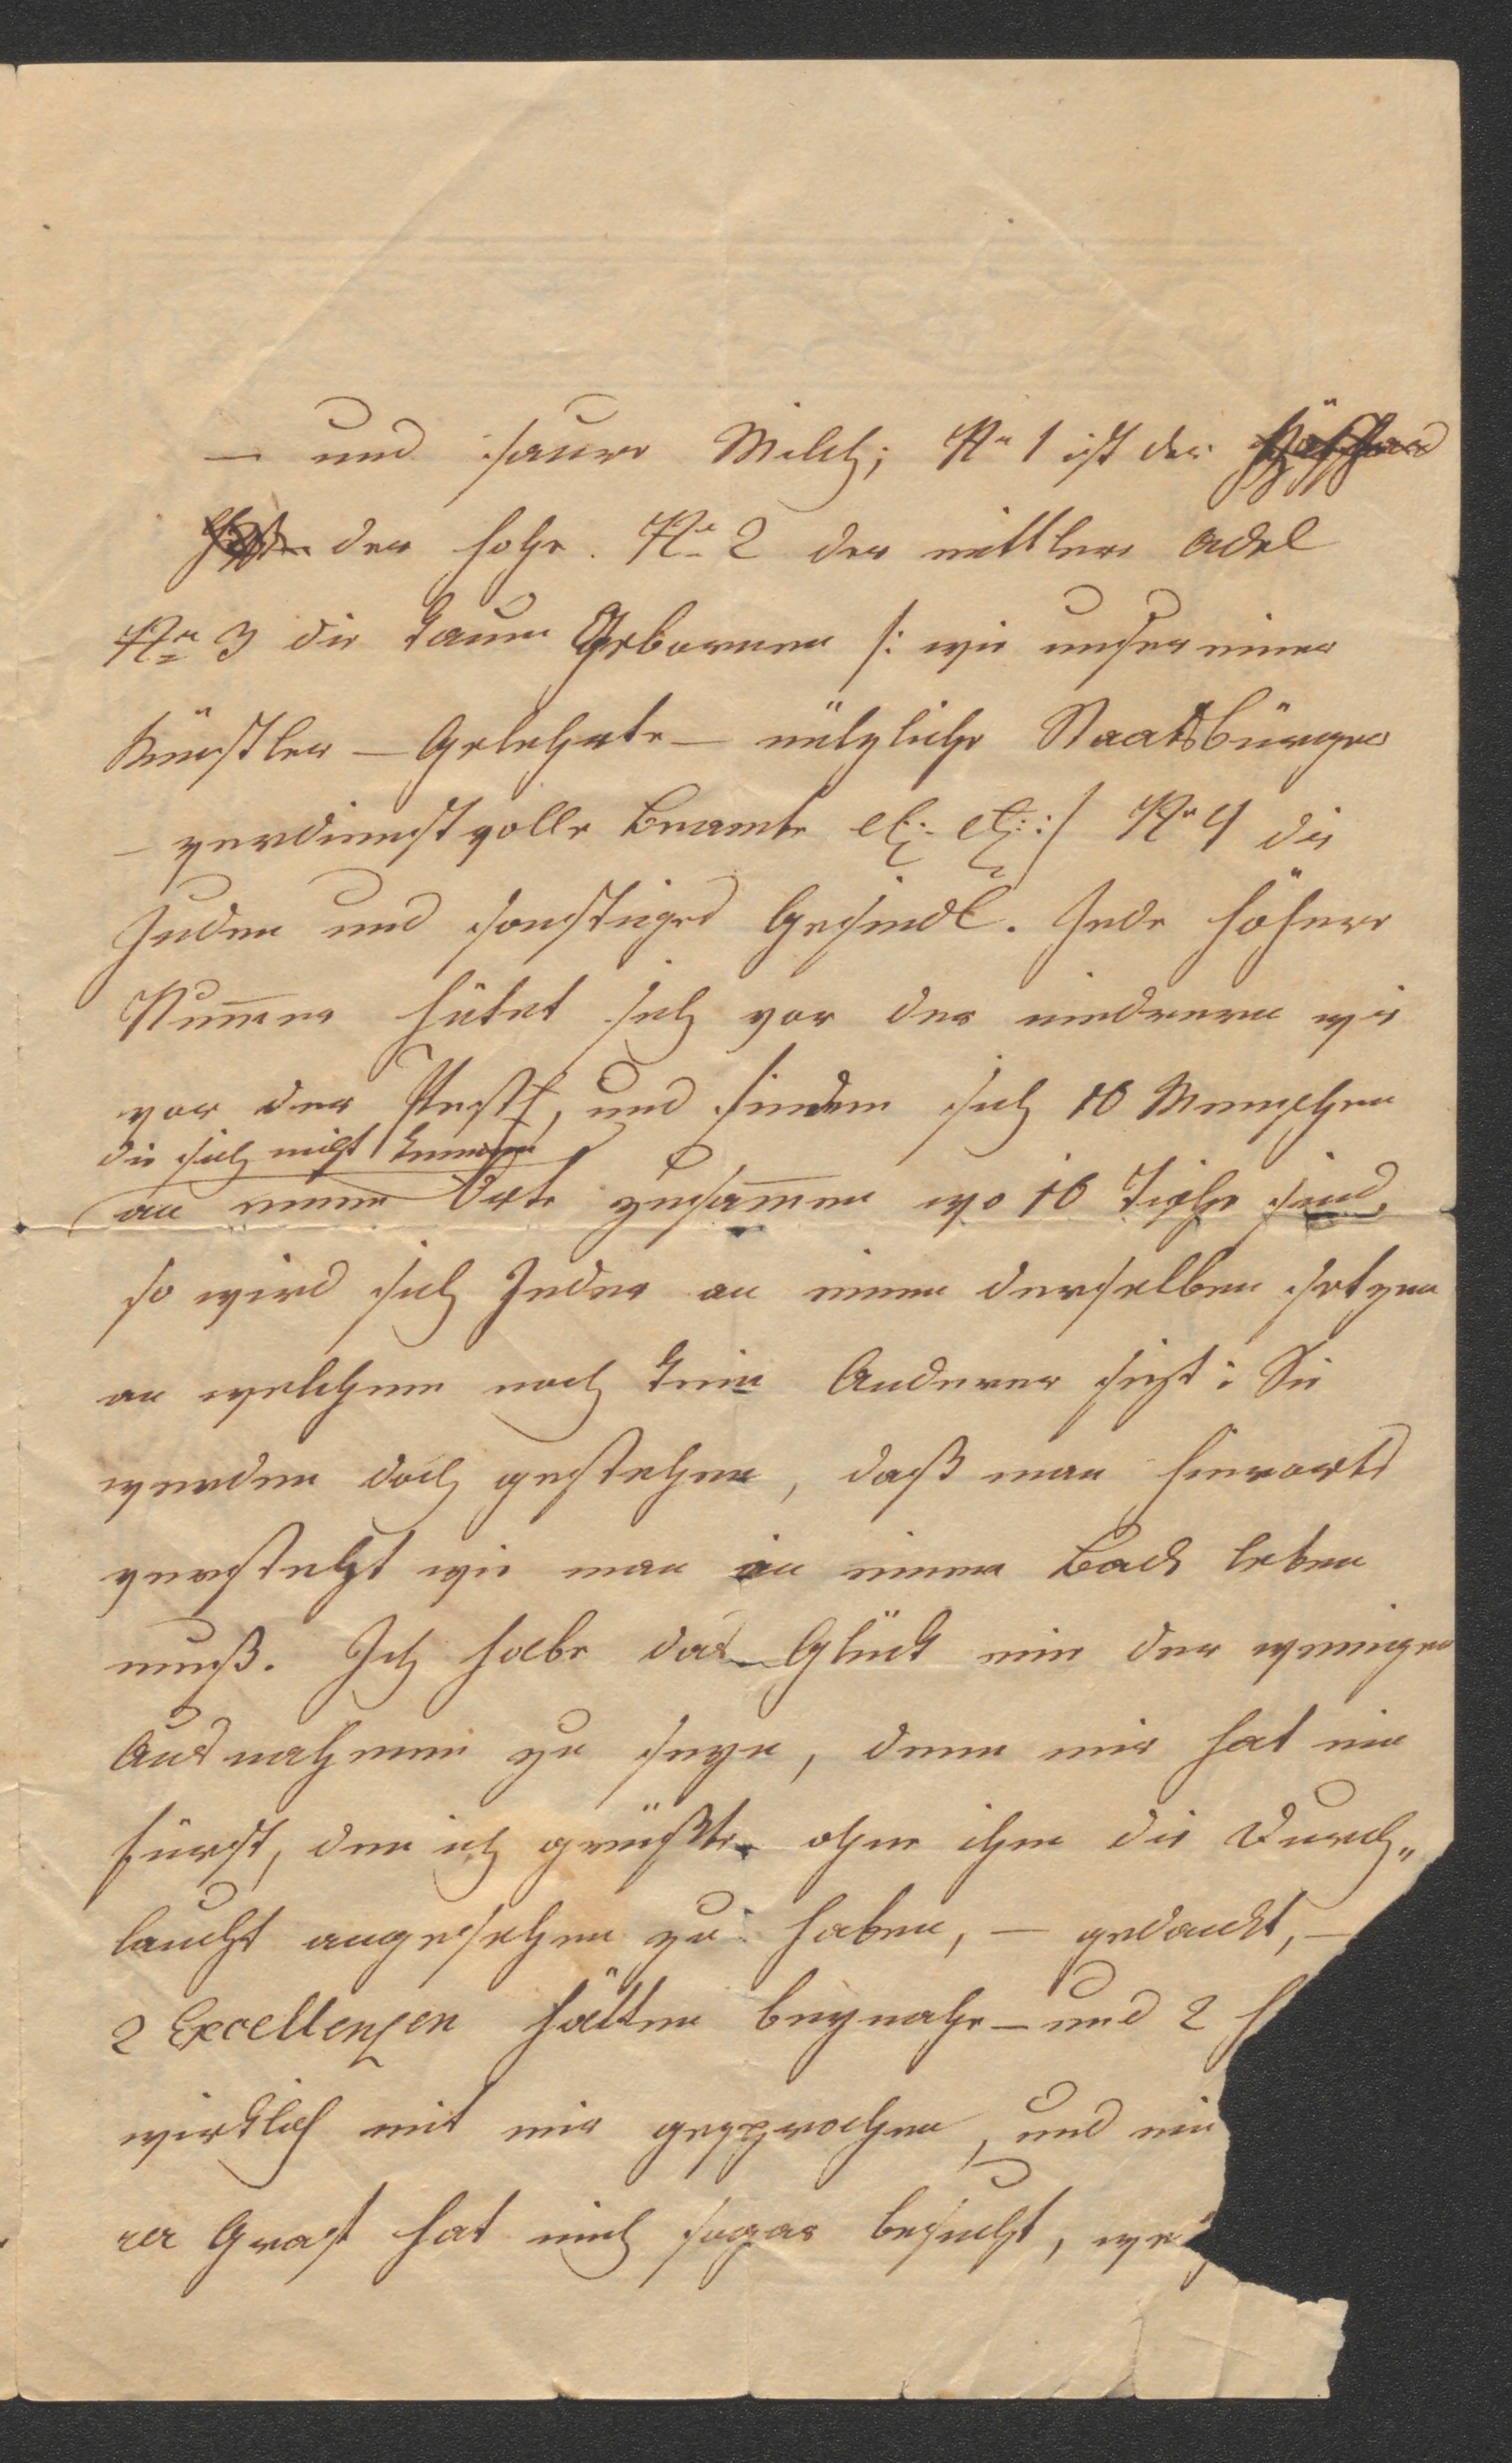 — und saure Milch; Nr 1 ist der
der hohe. Nr 2 der mittlere Adel
Nr 3 die kaum Gebornen /: wie unser einer
Künstler — Gelehrte — nützliche Staatsbürger
— verdienstvolle Beamte etz: etz: :/ Nr 4 die
Juden und sonstiges Gesindl. Jede höhere
Num̅er hütet sich vor der niederern wie
vor der Pest, und finden sich 10 Menschen
die sich nicht kennen
an einem Orte zusam̅en wo 10 Tische sind,
so wird sich Jeder an einen derselben setzen
an welchem noch kein Anderer sizt: Sie
werden doch gestehen, daß man hierorts
versteht wie man in einem Bade leben
muß. Ich habe das Glück eine der wenigen
Ausnahmen zu seyn, denn mir hat ein
Fürst, den ich grüßte ohne ihm die Durch„
laucht angesehen zu haben, — gedankt, —
2 Excellenzen hätten beynahe — und 2
wirklich mit mir gesprochen, und ein
rer Graf hat mich sogar besucht,